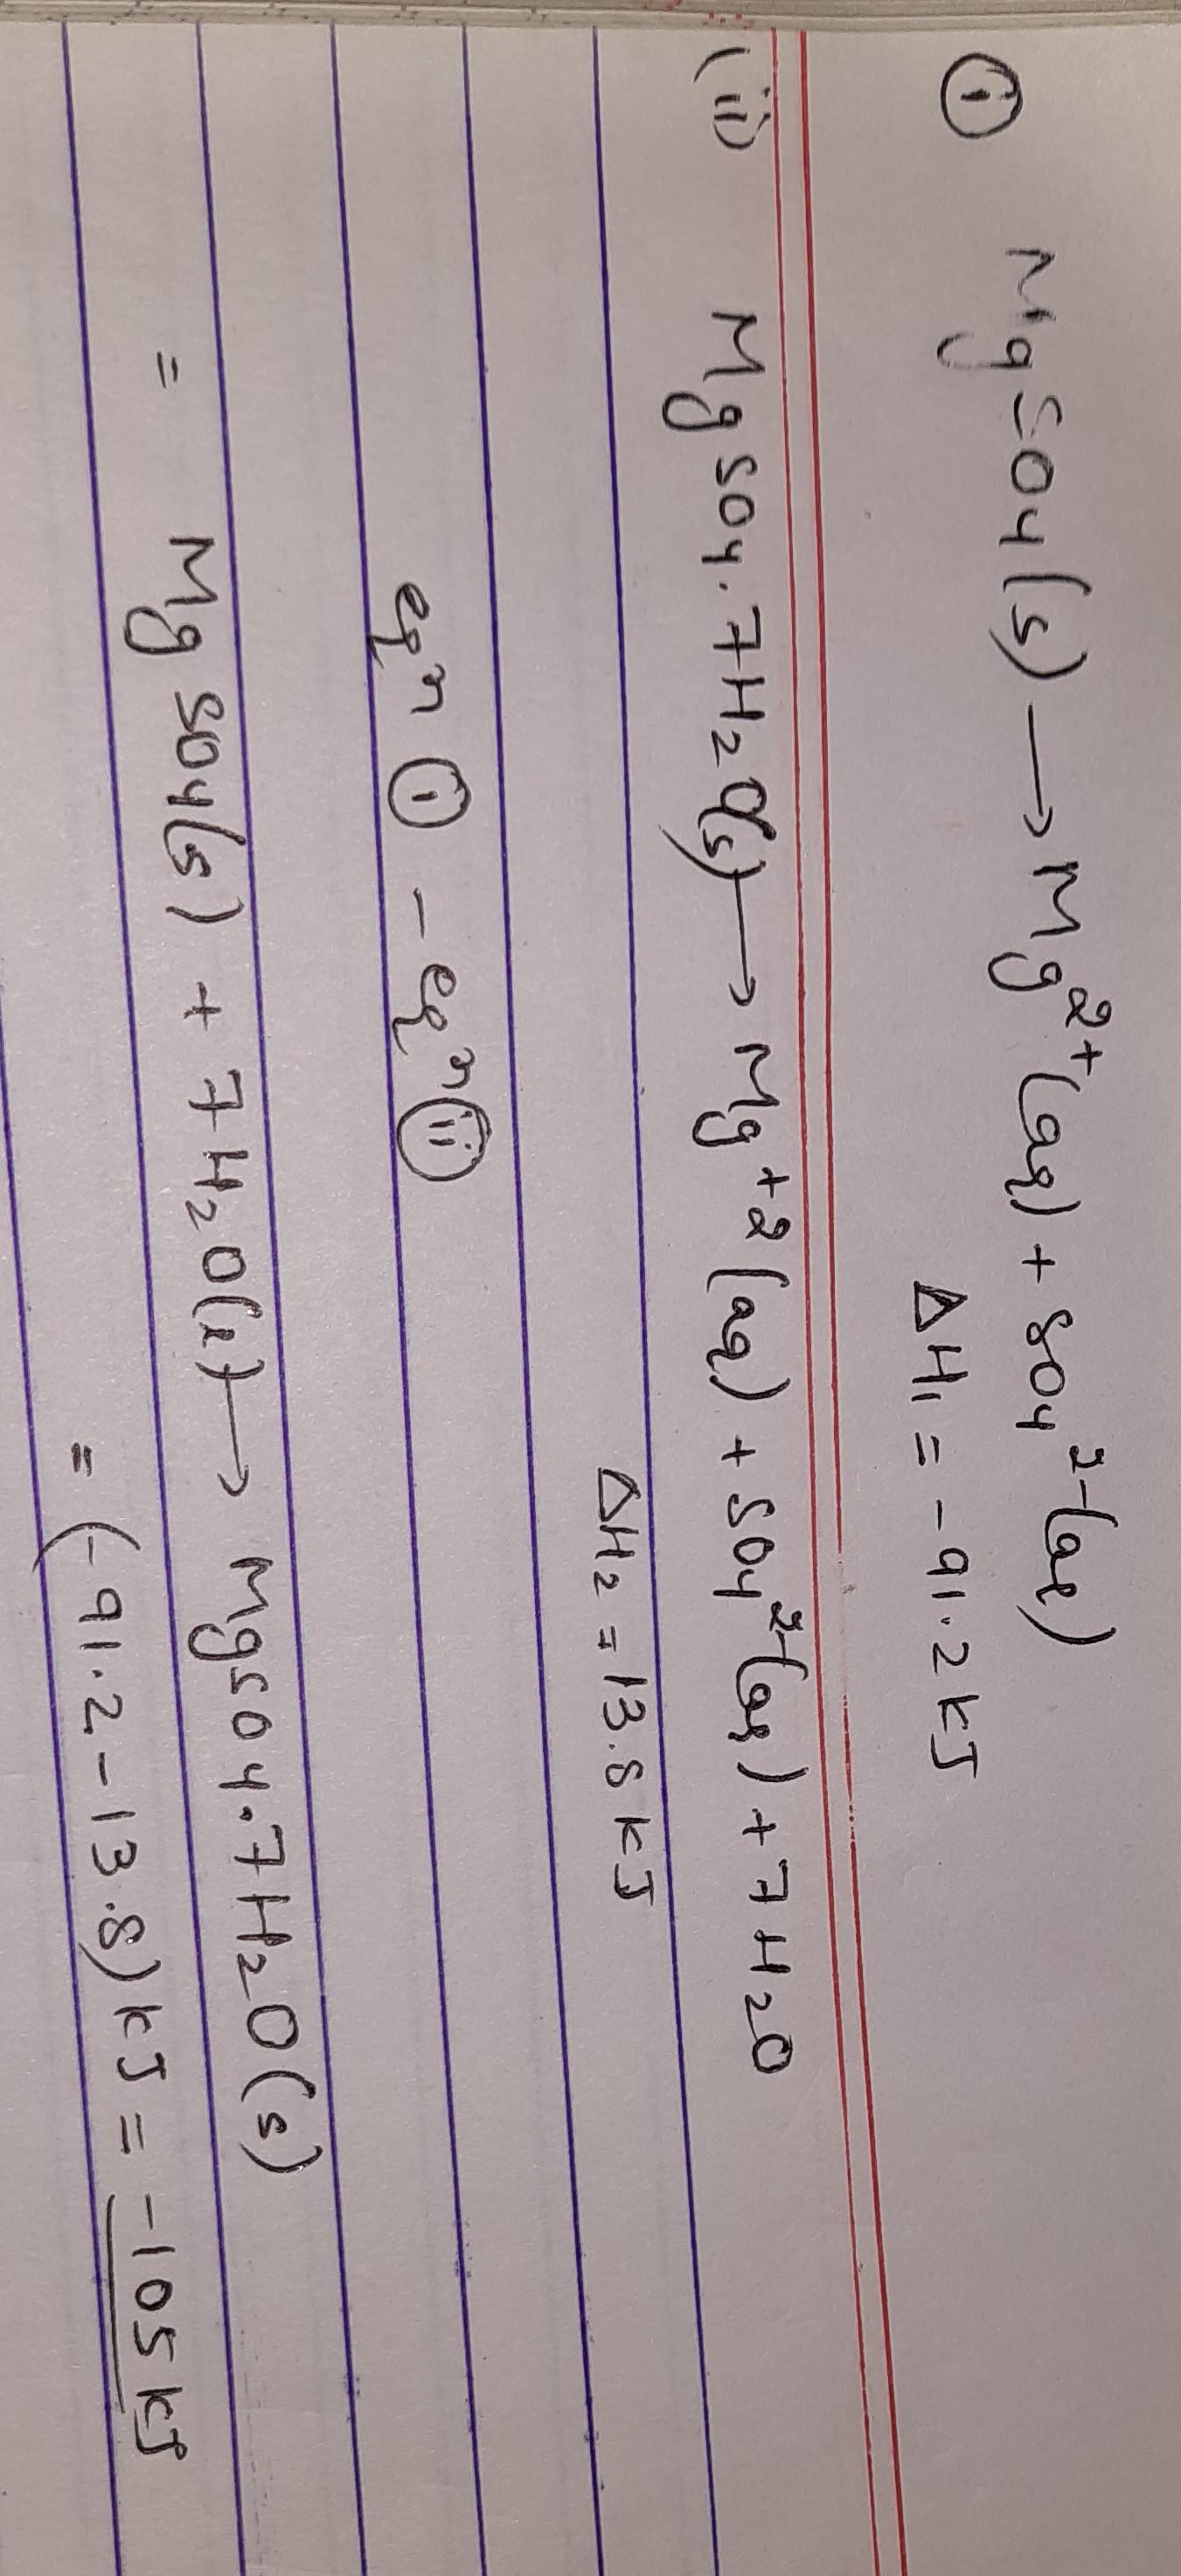 (i) MgSO4(s) → Mg²⁺(aq) + SO4²⁻(aq)
ΔH₁ = -91.2 kJ
(ii) MgSO4.7H₂O(s) → Mg⁺²(aq) + SO4²⁻(aq) + 7H₂O
ΔH₂ = 13.8 kJ
eqⁿ (i) - eqⁿ (ii)
= MgSO4(s) + 7H₂O(l) → MgSO4.7H₂O(s)
= (-91.2-13.8) kJ = -105 kJ